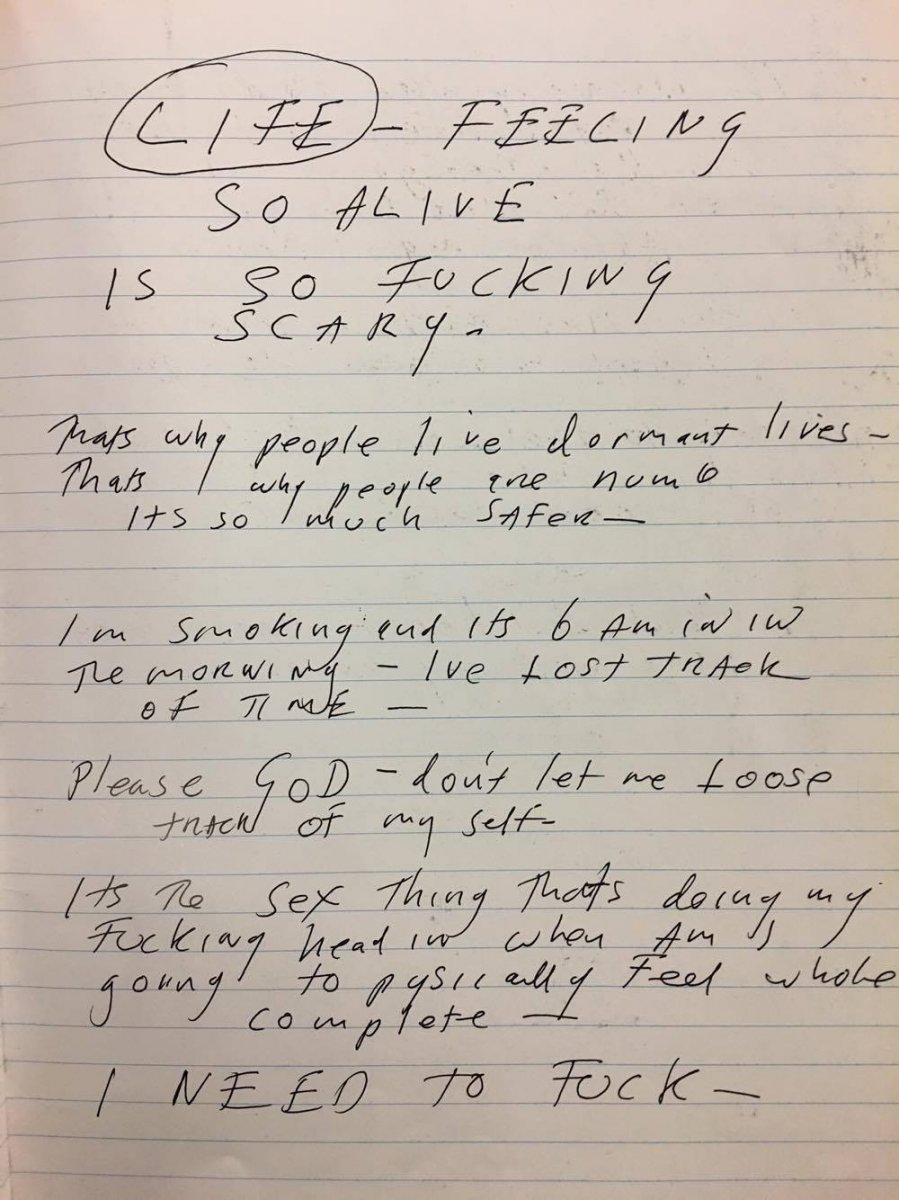 LIFE - FEELING
SO ALIVE
IS SO FUCKING
SCARY -
Thats why people live dormant lives -
Thats why people are numb
Its so much SAFER —
Im smoking and its 6 Am in in
The morning - Ive Lost track
OF TIME —
Please GOD - don't let me Loose
track of my self -
Its The sex Thing Thats doing my
Fucking head in when Am I
going to pysically Feel whole
complete —
I NEED TO FUCK —